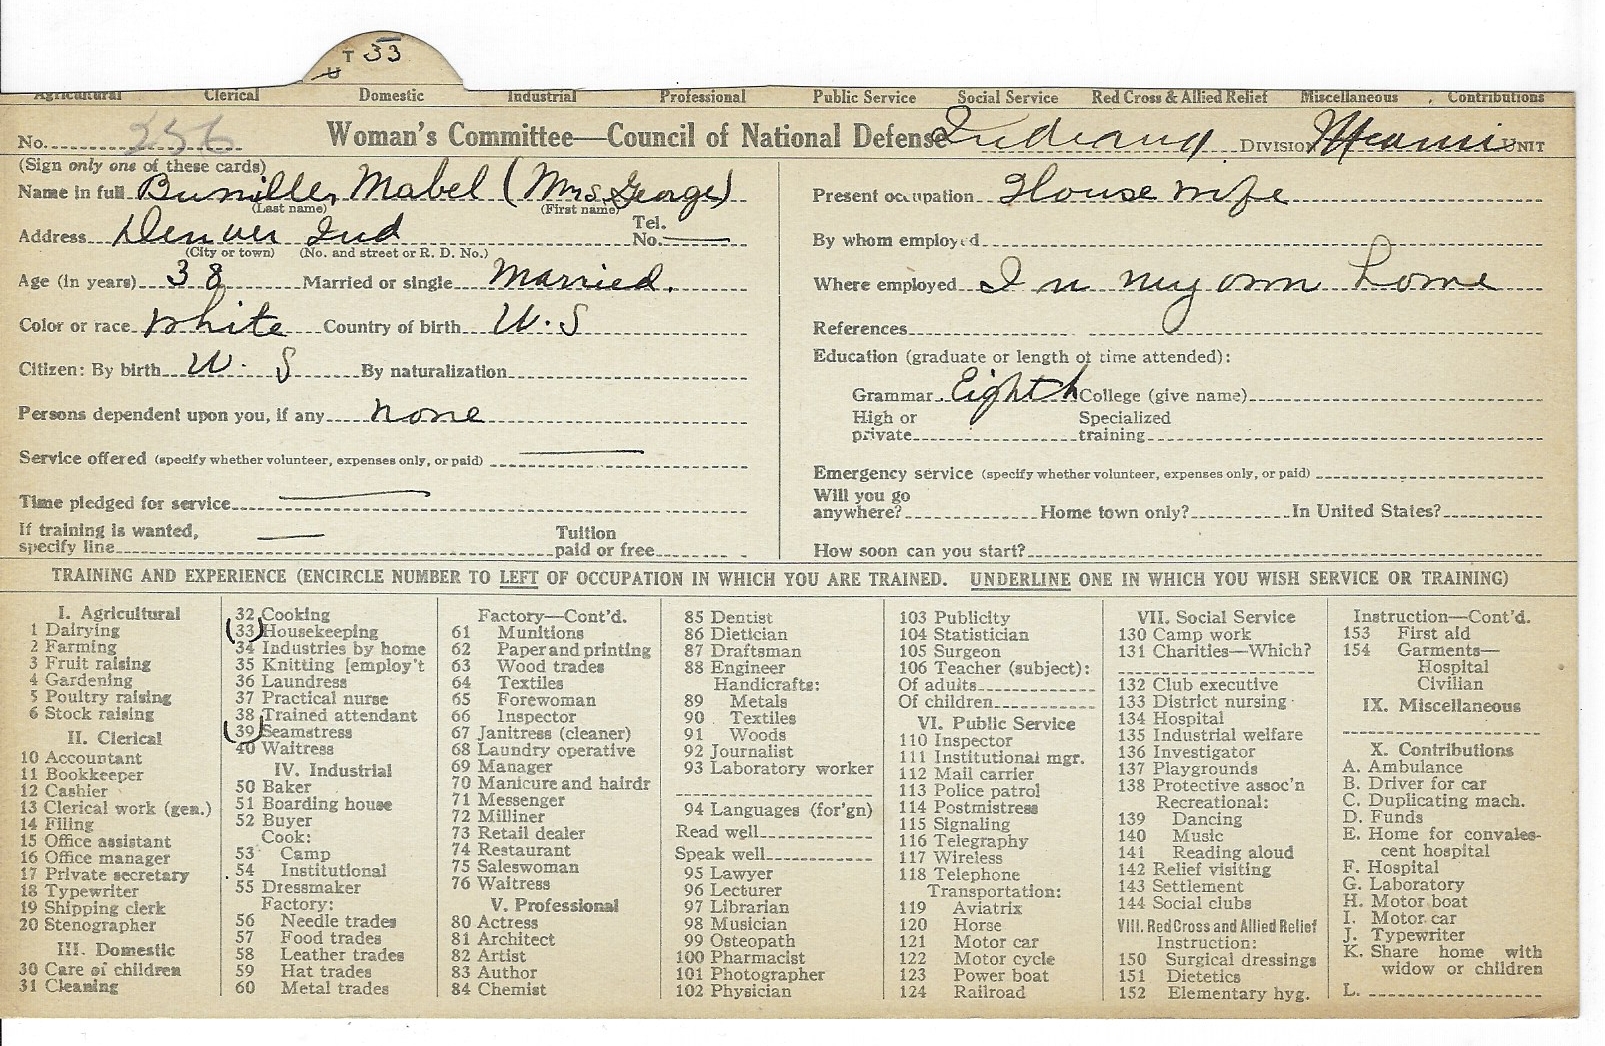 T 33
U
Agricultural Clerical Domestic Industrial Professional Public Service Social Service Red Cross & Allied Relief Miscellaneous Contributions
No. 256 Woman's Committee—Council of National Defense Indiana DIVISION Miami UNIT
(Sign only one of these cards)
Name in full Mabel (Mrs. George)
(Last name) (First name)
Address Denver Ind Tel. No.
(City or town) (No. and street or R. D. No.)
Age (in years) 38 Married or single Married.
Color or race White Country of birth U.S
Citizen: By birth U.S By naturalization
Persons dependent upon you, if any none
Service offered (specify whether volunteer, expenses only, or paid)
Time pledged for service
If training is wanted, Tuition
specify line paid or free
Present occupation House wife
By whom employed
Where employed In my own home
References
Education (graduate or length of time attended):
Grammar Eighth College (give name)
High or Specialized
private training
Emergency service (specify whether volunteer, expenses only, or paid)
Will you go
anywhere? Home town only? In United States?
How soon can you start?
TRAINING AND EXPERIENCE (ENCIRCLE NUMBER TO LEFT OF OCCUPATION IN WHICH YOU ARE TRAINED. UNDERLINE ONE IN WHICH YOU WISH SERVICE OR TRAINING)
I. Agricultural
1 Dairying
2 Farming
3 Fruit raising
4 Gardening
5 Poultry raising
6 Stock raising
II. Clerical
10 Accountant
11 Bookkeeper
12 Cashier
13 Clerical work (gen.)
14 Filing
15 Office assistant
16 Office manager
17 Private secretary
18 Typewriter
19 Shipping clerk
20 Stenographer
III. Domestic
30 Care of children
31 Cleaning
32 Cooking
(33) Housekeeping
34 Industries by home
35 Knitting [employ't
36 Laundress
37 Practical nurse
38 Trained attendant
(39) Seamstress
40 Waitress
IV. Industrial
50 Baker
51 Boarding house
52 Buyer
Cook:
53 Camp
54 Institutional
55 Dressmaker
Factory:
56 Needle trades
57 Food trades
58 Leather trades
59 Hat trades
60 Metal trades
Factory—Cont'd.
61 Munitions
62 Paper and printing
63 Wood trades
64 Textiles
65 Forewoman
66 Inspector
67 Janitress (cleaner)
68 Laundry operative
69 Manager
70 Manicure and hairdr
71 Messenger
72 Milliner
73 Retail dealer
74 Restaurant
75 Saleswoman
76 Waitress
V. Professional
80 Actress
81 Architect
82 Artist
83 Author
84 Chemist
85 Dentist
86 Dietician
87 Draftsman
88 Engineer
Handicrafts:
89 Metals
90 Textiles
91 Woods
92 Journalist
93 Laboratory worker
94 Languages (for'gn)
Read well
Speak well
95 Lawyer
96 Lecturer
97 Librarian
98 Musician
99 Osteopath
100 Pharmacist
101 Photographer
102 Physician
103 Publicity
104 Statistician
105 Surgeon
106 Teacher (subject):
Of adults
Of children
VI. Public Service
110 Inspector
111 Institutional mgr.
112 Mail carrier
113 Police patrol
114 Postmistress
115 Signaling
116 Telegraphy
117 Wireless
118 Telephone
Transportation:
119 Aviatrix
120 Horse
121 Motor car
122 Motor cycle
123 Power boat
124 Railroad
VII. Social Service
130 Camp work
131 Charities—Which?
132 Club executive
133 District nursing
134 Hospital
135 Industrial welfare
136 Investigator
137 Playgrounds
138 Protective assoc'n
Recreational:
139 Dancing
140 Music
141 Reading aloud
142 Relief visiting
143 Settlement
144 Social clubs
VIII. Red Cross and Allied Relief
Instruction:
150 Surgical dressings
151 Dietetics
152 Elementary hyg.
Instruction—Cont'd.
153 First aid
154 Garments—
Hospital
Civilian
IX. Miscellaneous
X. Contributions
A. Ambulance
B. Driver for car
C. Duplicating mach.
D. Funds
E. Home for convales-
cent hospital
F. Hospital
G. Laboratory
H. Motor boat
I. Motor car
J. Typewriter
K. Share home with
widow or children
L.